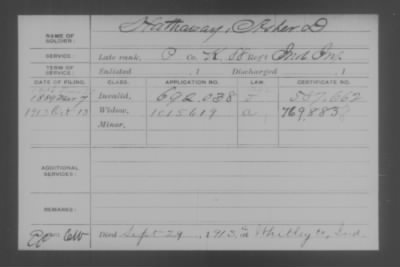 NAME OF SOLDIER: Hathaway, Asher D
SERVICE: Late rank, P Co. K, Reg't Ind Inf.
TERM OF SERVICE: Enlisted , 1 Discharged , 1
DATE OF FILING. CLASS. APPLICATION NO. LAW. CERTIFICATE NO.
1889 Mar 7 Invalid, 692,038 587,662
1913 Oct 13 Widow, 1015619 a 769,883
Minor,
ADDITIONAL SERVICES:
REMARKS:
Died Sept 29, 1913, in Whitley Co, Ind.